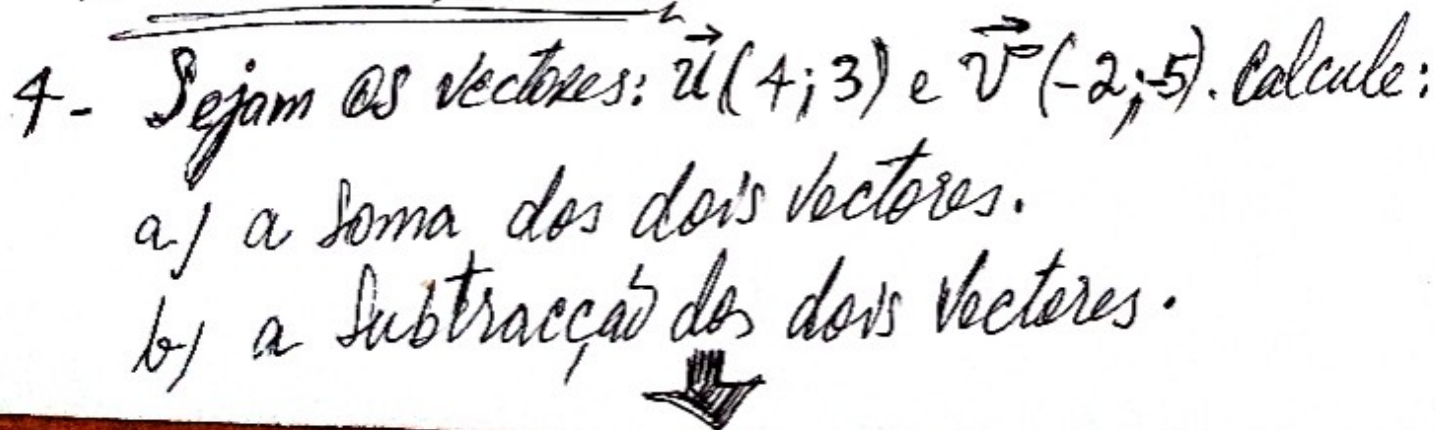 4- Sejam os vectores: u⃗(4;3) e v⃗(-2;-5). Calcule:
a) a soma dos dois vectores.
b) a subtracção dos dois vectores.